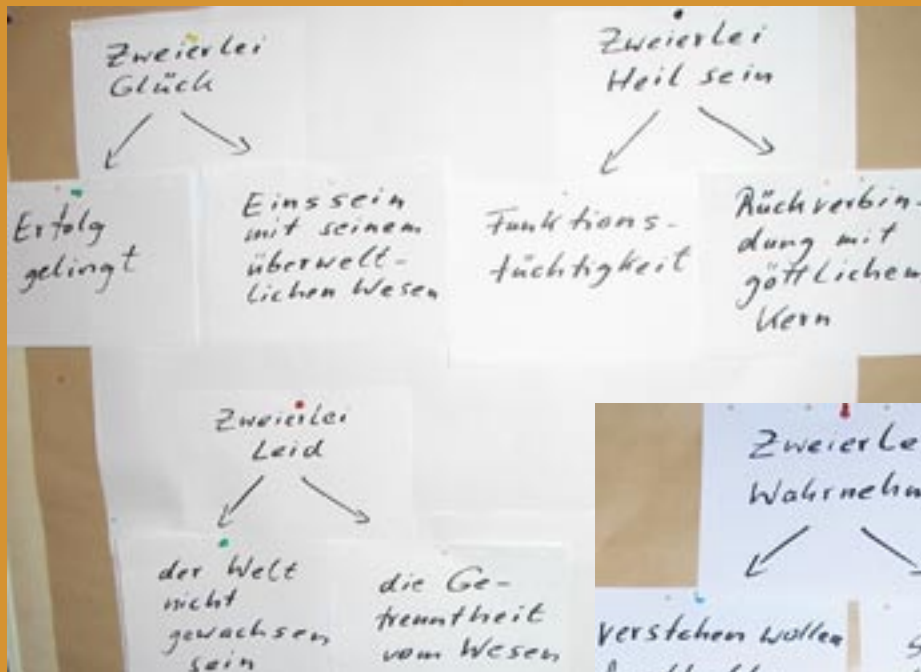 Zweierlei
Glück
Erfolg
gelingt
Einssein
mit seinem
überwelt-
lichen Wesen
Zweierlei
Heil sein
Funktions-
tüchtigkeit
Rückverbin-
dung mit
göttlichem
Kern
Zweierlei
Leid
der Welt
nicht
gewachsen
sein
die Ge-
trenntheit
vom Wesen
Zweierle
Wahrnehm
verstehen wollen